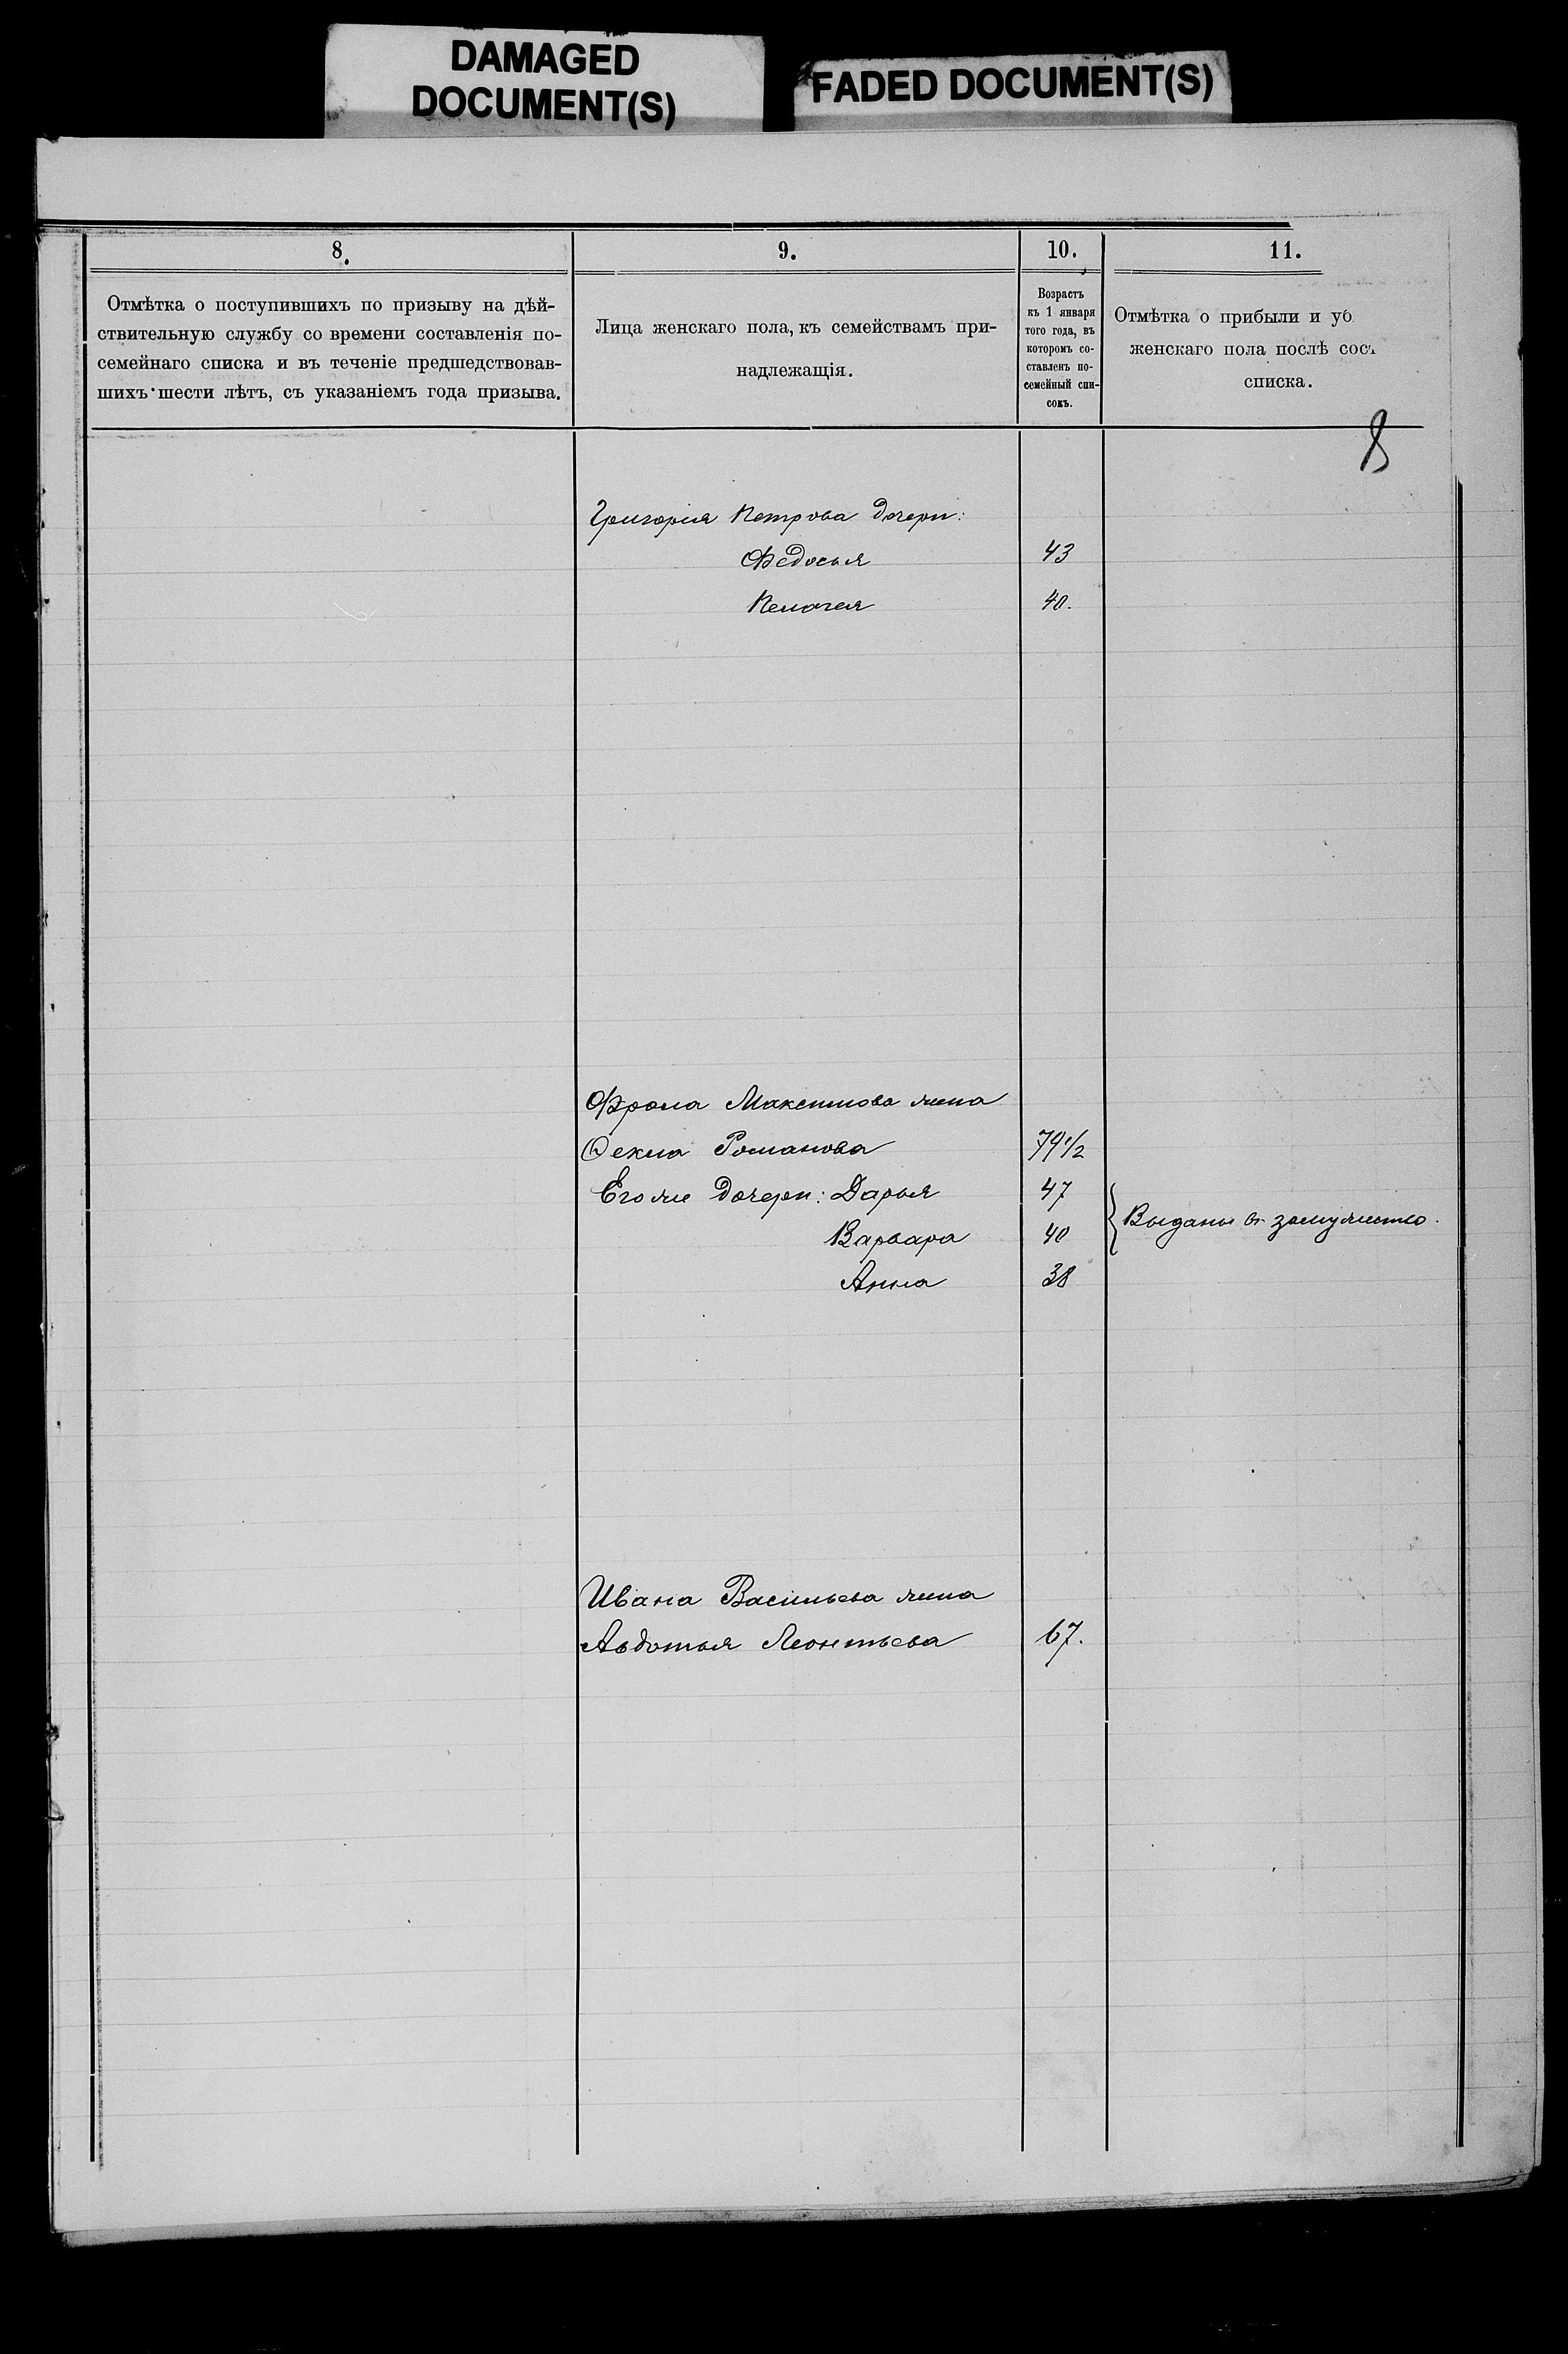 DAMAGED
DOCUMENT(S)
FADED DOCUMENT(S)
8.
Отмѣтка о поступившихъ по призыву на дѣй-
ствительную службу со времени составленія по-
семейнаго списка и въ теченіе предшедствовав-
шихъ шести лѣтъ, съ указаніемъ года призыва.
9.
Лица женскаго пола, къ семействамъ при-
надлежащія.
10.
Возрастъ
къ 1 января
того года, въ
которомъ со-
ставленъ по-
семейный спи-
сокъ.
11.
Отмѣтка о прибыли и уб
женскаго пола послѣ сост
списка.
8
Григорія Петрова дочери:
Федосья 43
Пелагея 40.
Фрола Максимова жена
Ѳекла Романова 79 1/2
Его же дочери: Дарья 47
Варвара 40
Выданы въ замужество.
Анна 38
Ивана Васильева жена
Авдотья Леонтьева 67.